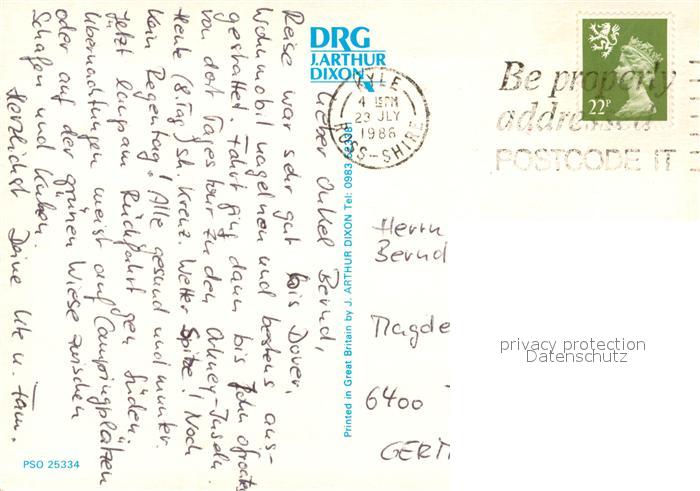 Lieber Onkel Bernd,
Reise war sehr gut bis Dover,
Wohnmobil nagelneu und bestens aus-
gestattet. Fahrt ging dann bis John o'Groats
von dort Tagestour zu den Orkney-Inseln.
Heute (8. Tag) sh. Kreuz. Wetter Spitze! Noch
kein Regentag! Alle gesund und munter.
Jetzt langsam Rückfahrt gen Süden.
Übernachtungen meist auf Campingplätzen
oder auf der grünen Wiese zwischen
Schafen und Kühen.
Herzlichst Deine Ute u. Fam.
DRG
J. ARTHUR
DIXON
KYLE
4 15PM
23 JLY
1986
ROSS-SHIRE
Be properly
addressed
POSTCODE IT
22P
Printed in Great Britain by J. ARTHUR DIXON Tel: 0983
Herrn
Bernd
Magde
6400
GERM
privacy protection
Datenschutz
PSO 25334